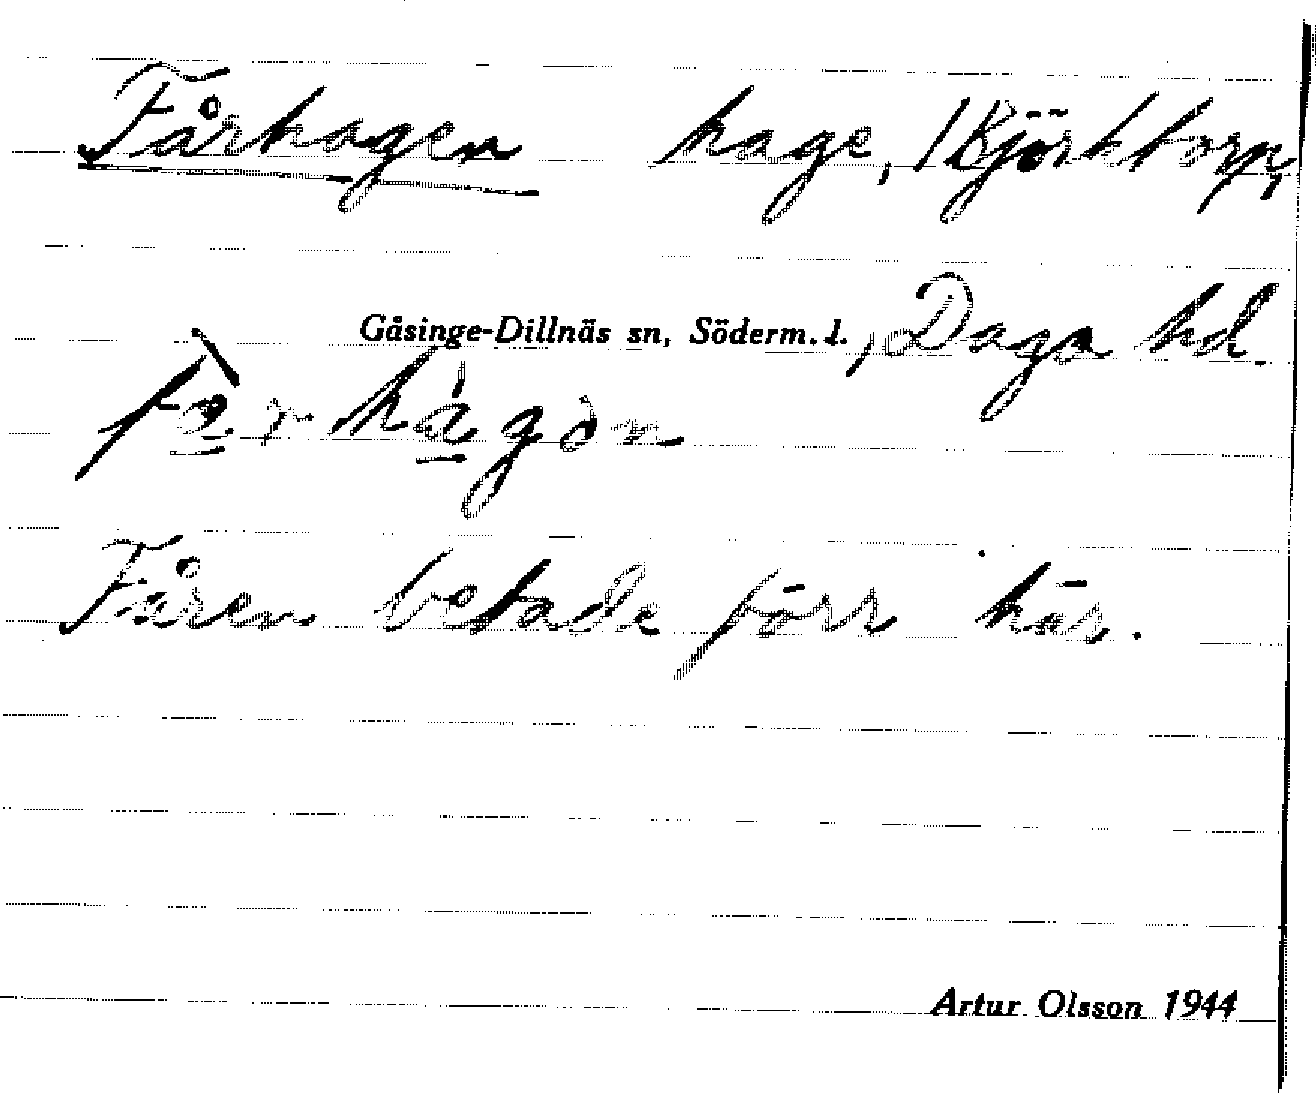 Fårhagen hage, Björktorp,
Gåsinge-Dillnäs sn, Söderm. l., Daga hd.
fà̱rhá̱gən
Fåren betade förr här.
Artur Olsson 1944